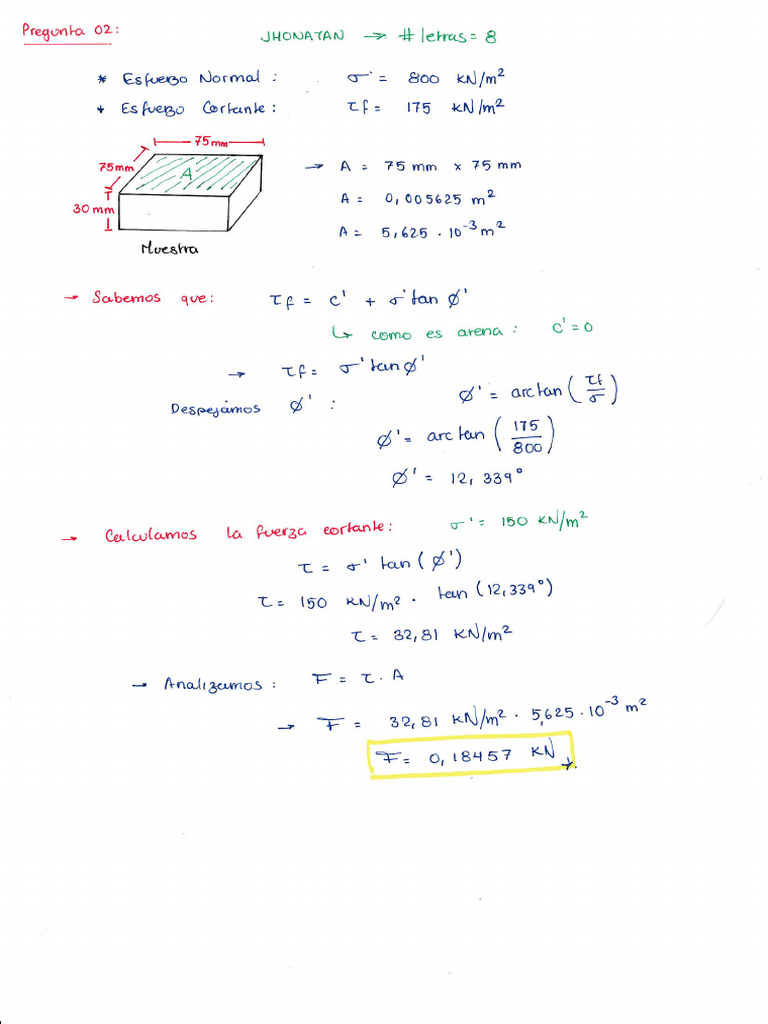 Pregunta 02:
JHONATAN → # letras = 8
* Esfuerzo Normal: σ' = 800 KN/m²
* Esfuerzo Cortante: τf = 175 KN/m²
75 mm
75 mm
A
30 mm
Muestra
→ A = 75 mm x 75 mm
A = 0,005625 m²
A = 5,625 · 10⁻³ m²
→ Sabemos que: τf = c' + σ' tan ϕ'
↳ como es arena: c' = 0
→ τf = σ' tan ϕ'
Despejamos ϕ' : ϕ' = arctan (τf/σ)
ϕ' = arctan (175/800)
ϕ' = 12,339°
→ Calculamos la fuerza cortante: σ' = 150 KN/m²
τ = σ' tan (ϕ')
τ = 150 KN/m² · tan (12,339°)
τ = 32,81 KN/m²
→ Analizamos: F = τ · A
→ F = 32,81 KN/m² · 5,625 · 10⁻³ m²
F = 0,18457 KN